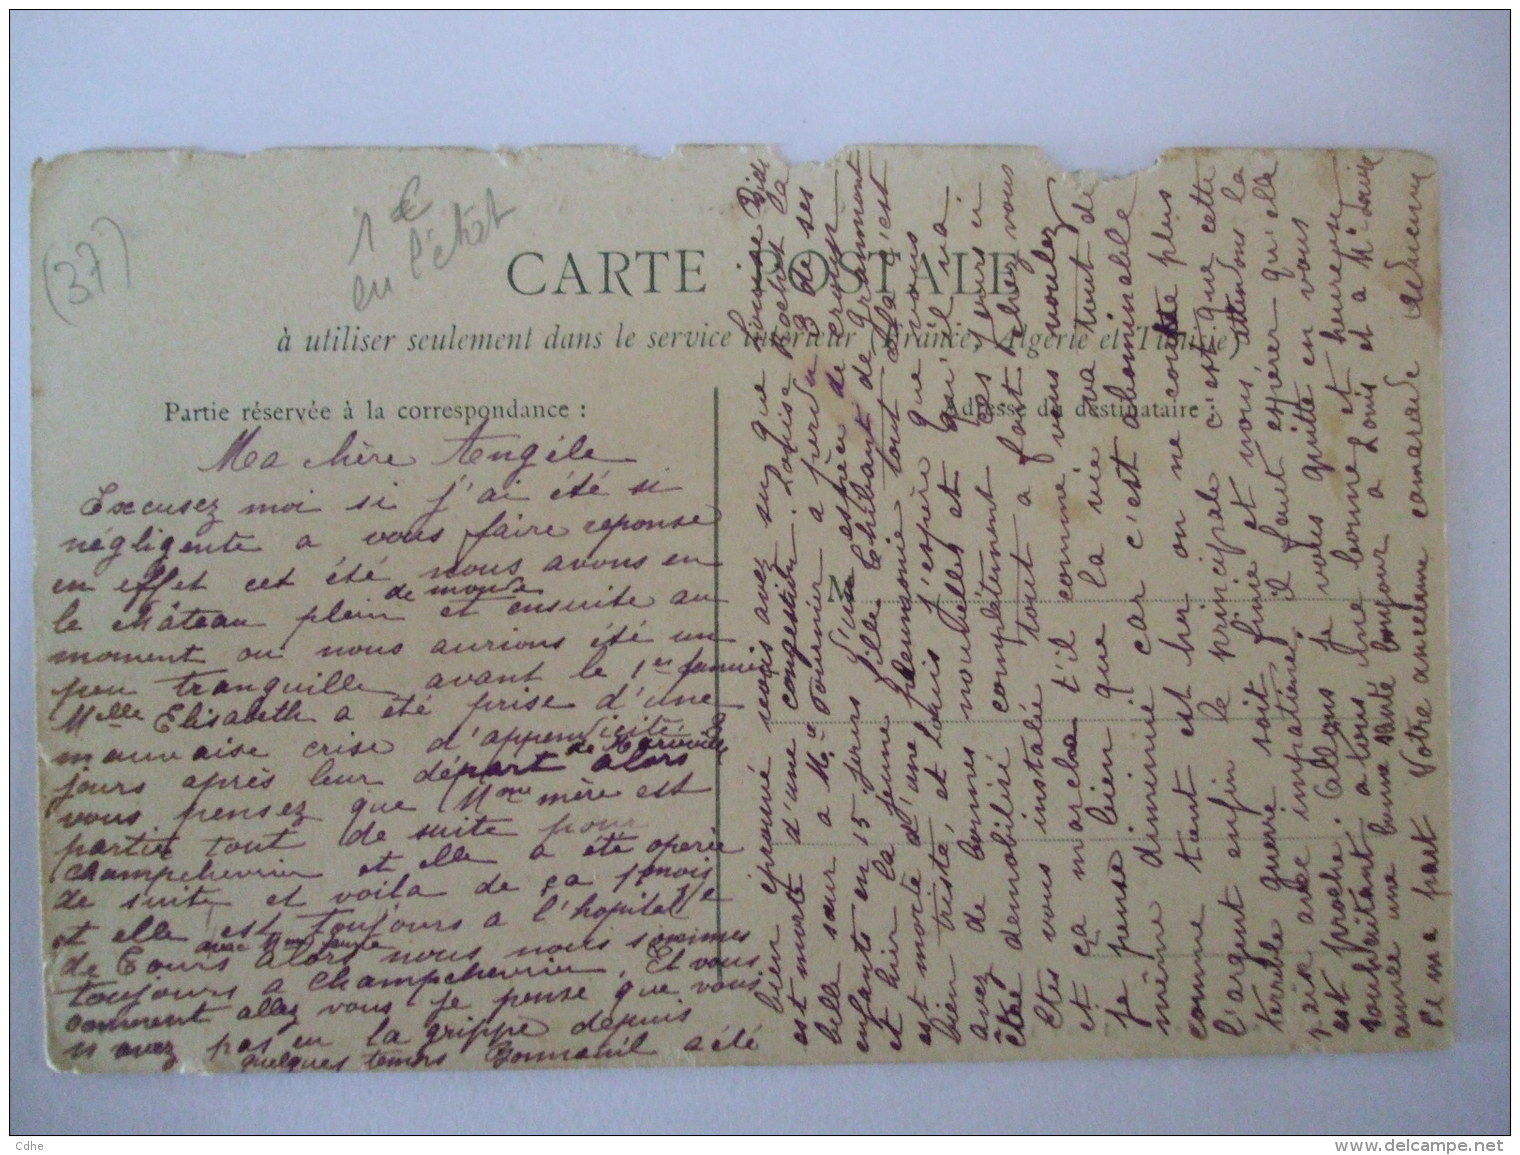 (37)
1 €
en l'état
CARTE POSTALE
à utiliser seulement dans le service intérieur (France, Algérie et Tunisie)
Partie réservée à la correspondance :
Adresse du destinataire :
Ma chère Angéle
Excusez moi si j'ai été si
négligente a vous faire reponse
en effet cet été nous avons eu
le château plein de monde et ensuite au
moment ou nous aurions été un
peu tranquille avant le 1er Janvier
Melle Elisabeth a été prise d'une
mauvaise crise d'appendicite
jours après leur départ de alors
vous pensez que Mme mère est
partie tout de suite pour
Champchevrier et elle a été operée
de suite et voila de ça 1 mois
et elle est toujours a l'hopital
de Tours avec Mme alors nous nous sommes
toujours a Champchevrier. Et vous
comment allez vous je pense que vous
n'avez pas eu la grippe depuis
quelques temps Bonneuil a été
bien éprouvé vous avez su que Louise
est morte d'une congestion. Louise Rochet la
belle sœur a Me Fournier a perdu 3 de ses
enfants en 15 jours
et hier la jeune fille Chétiant de Grammont
est morte d'une pleumonie tout cela c'est
bien triste, et Louis j'espère que vous
avez de bonnes nouvelles et qu'il va
être demobilisé complètement ces jours ci
Etes vous installée tout a fait chez vous
et ça marche t'il comme vous voulez
je pense bien que la vie va tout de
même diminuée car c'est abominable
comme tout est cher on ne conte plus
l'argent enfin le principale c'est que cette
terrible guerre soit finie et nous attendons la
paix avec impatience il faut espérer qu'elle
est proche. Allons je vous quitte en vous
souhaitant a tous une bonne et heureuse
année une bonne santé bonjour a Louis et a Me Louise
de ma part Votre ancienne camarade
Cdhe
www.delcampe.net